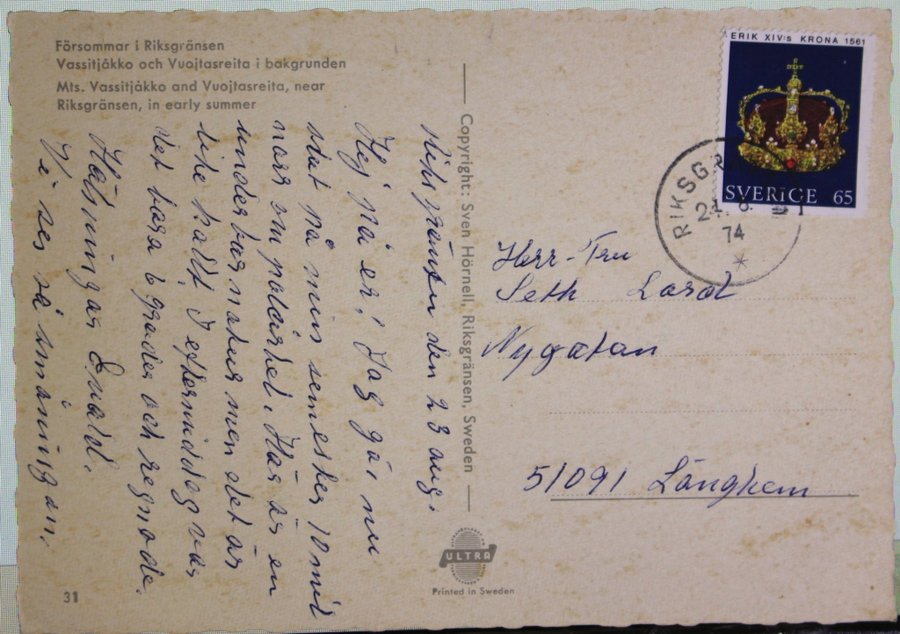 Försommar i Riksgränsen
Vassitjåkko och Vuojtasreita i bakgrunden
Mts. Vassitjåkko and Vuojtasreita, near
Riksgränsen, in early summer
Riksgränsen den 23 aug.
Hej på er! Jag går nu
slut på min semester 10 mil
norr om polcirkel. Här är en
underbar natur men det är
lite kallt. I eftermiddag var
det bara 6 grader och regnade.
Hälsningar Evald.
Vi ses så småningom.
Copyright: Sven Hörnell, Riksgränsen, Sweden
ERIK XIV:s KRONA 1561
SVERIGE 65
RIKSG
74
Herr-Fru
Seth
Nygatan
51091 Länghem
ULTRA
Printed in Sweden
31